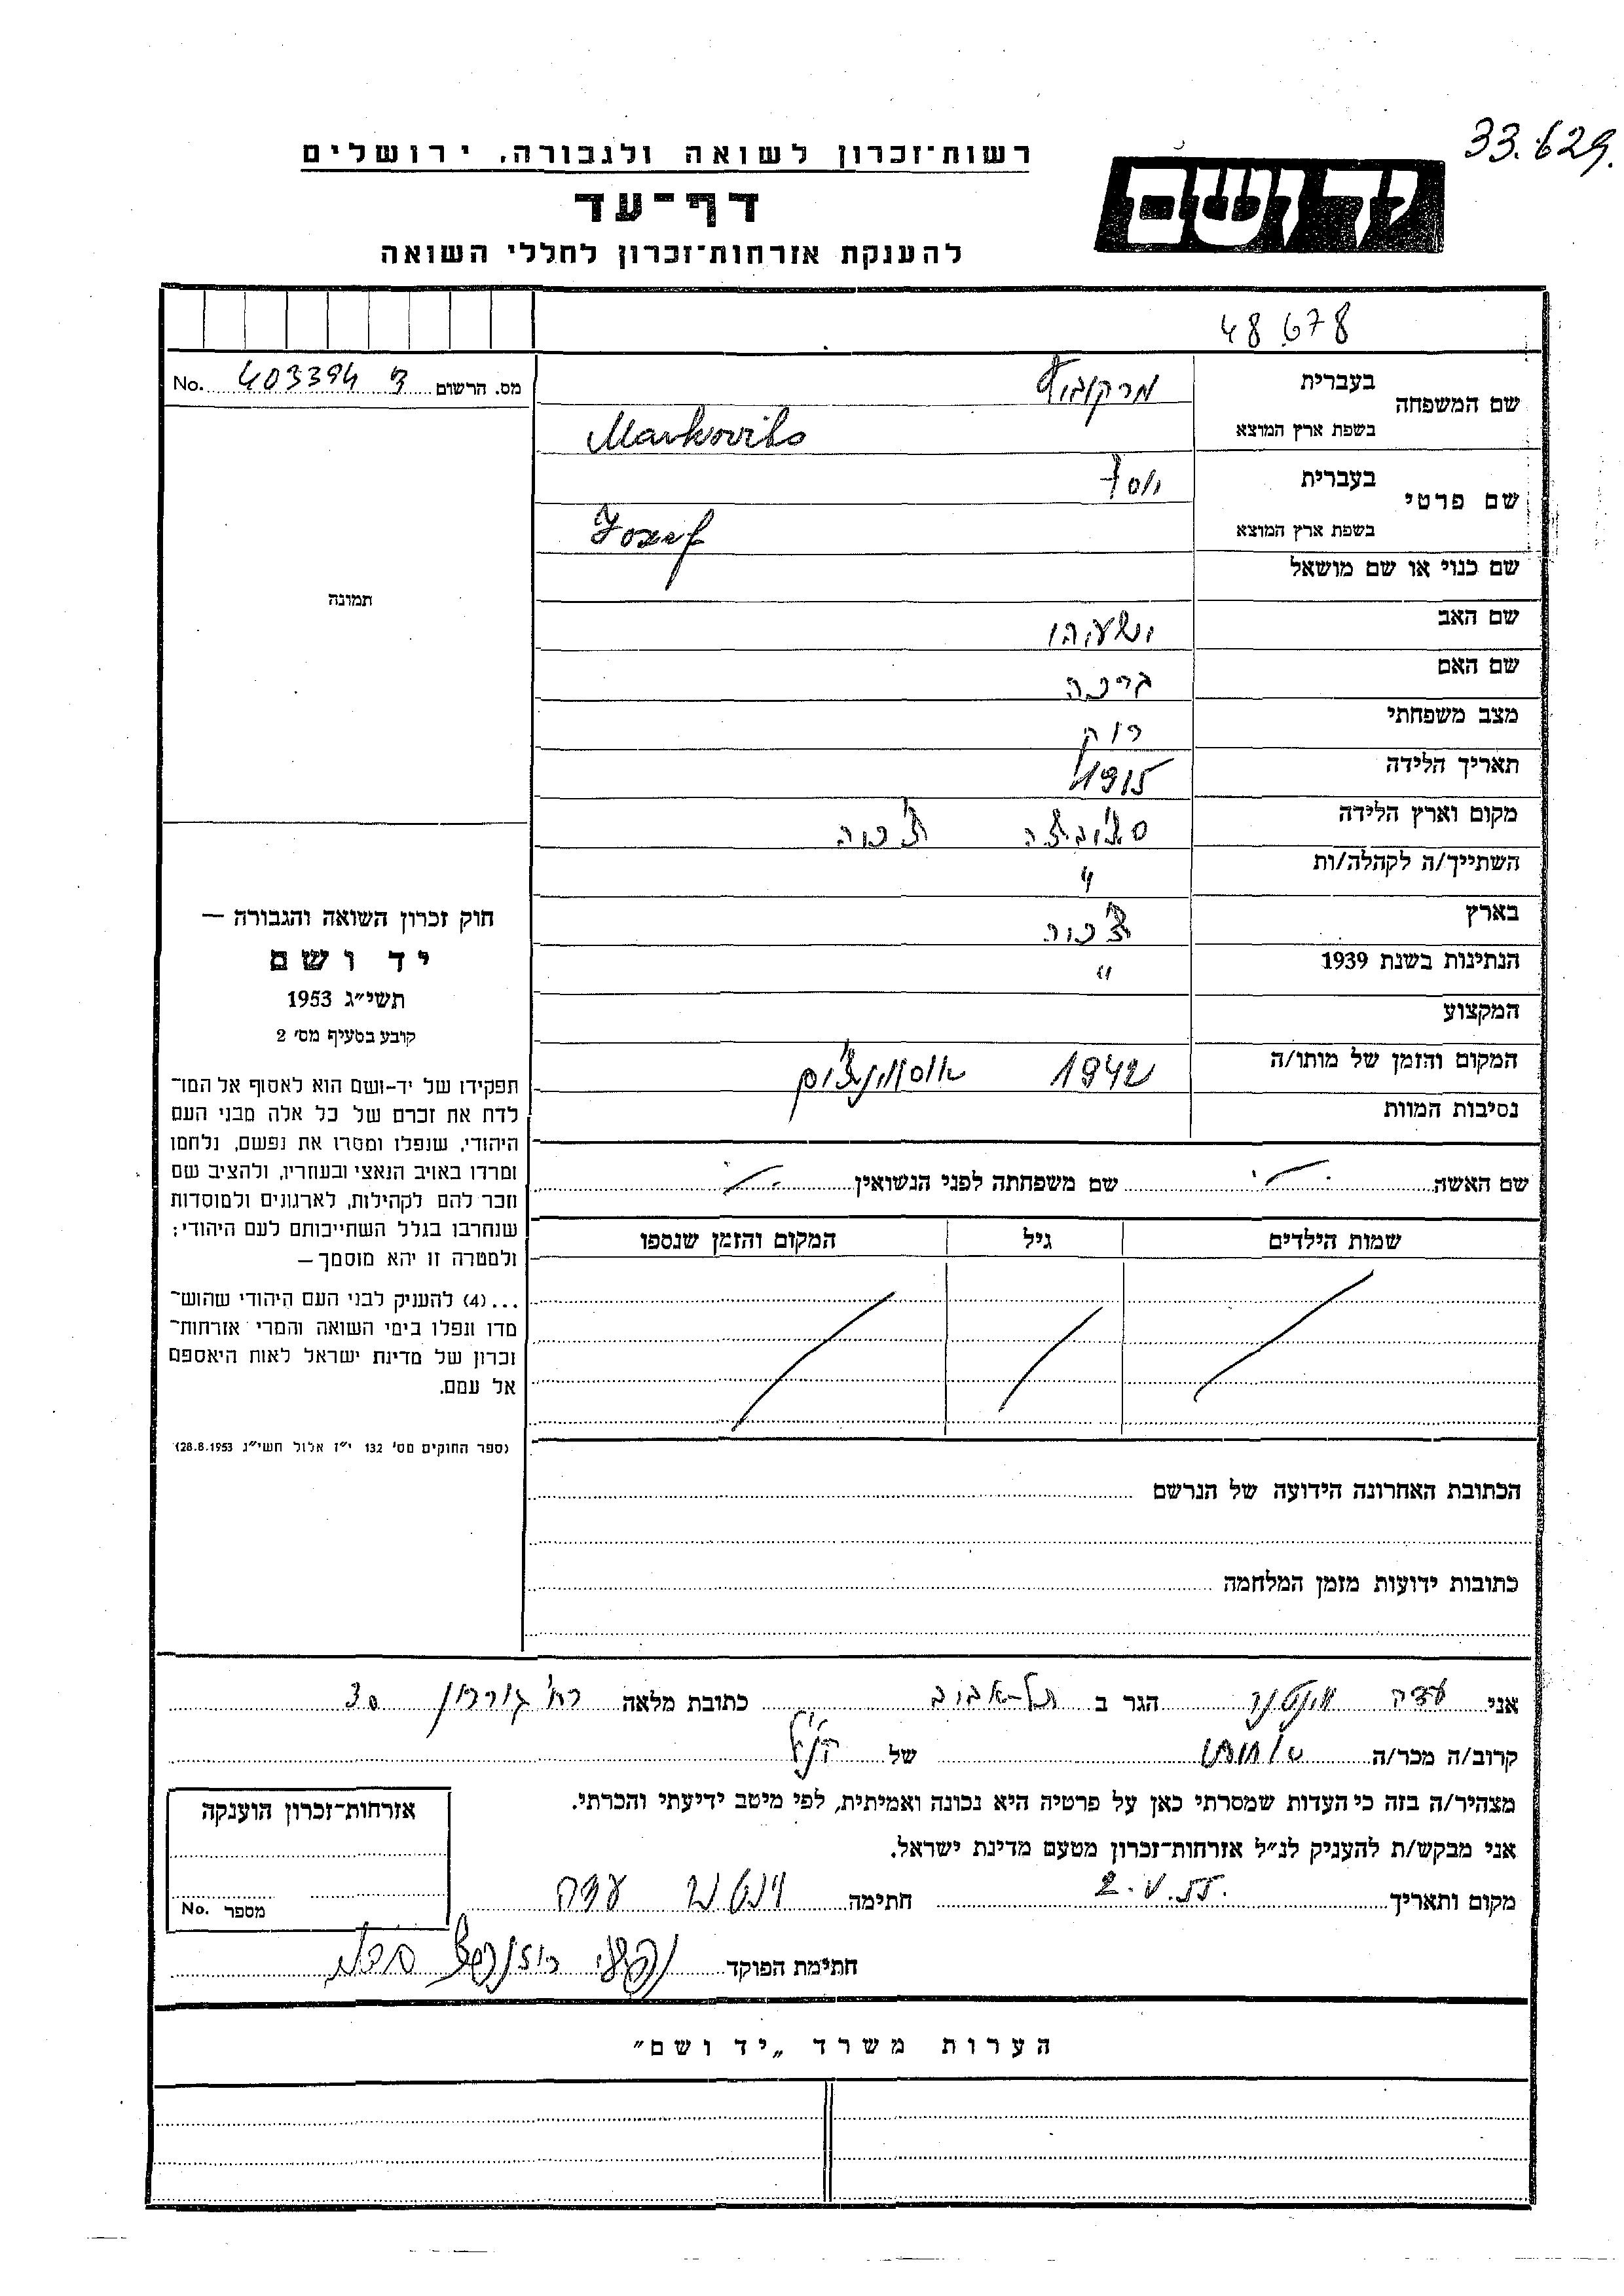 33.629.
יד ושם
רשות־זכרון לשואה ולגבורה, ירושלים
דף־עד
להענקת אזרחות־זכרון לחללי השואה
48 678
מס. הרשום 403394 No.
שם המשפחה
בעברית מרקוביץ
בשפת ארץ המוצא Markovits
שם פרטי
בעברית יוסף
בשפת ארץ המוצא Jozef
שם כנוי או שם מושאל
שם האב ישעיהו
שם האם ברכה
מצב משפחתי רווק
תאריך הלידה 1915
מקום וארץ הלידה
השתייך/ה לקהלה/ות "
בארץ
הנתינות בשנת 1939 "
המקצוע
המקום והזמן של מותו/ה 1942
נסיבות המוות
שם האשה שם משפחתה לפני הנשואין
שמות הילדים גיל המקום והזמן שנספו
הכתובת האחרונה הידועה של הנרשם
כתובות ידועות מזמן המלחמה
תמונה
חוק זכרון השואה והגבורה —
יד ושם
תשי״ג 1953
קובע בסעיף מס׳ 2
תפקידו של יד-ושם הוא לאסוף אל המו־
לדת את זכרם של כל אלה מבני העם
היהודי, שנפלו ומסרו את נפשם, נלחמו
ומרדו באויב הנאצי ובעוזריו, ולהציב שם
וזכר להם לקהילות, לארגונים ולמוסדות
שנחרבו בגלל השתייכותם לעם היהודי;
ולמטרה זו יהא מוסמך —
...(4) להעניק לבני העם היהודי שהוש־
מדו ונפלו בימי השואה והמרי אזרחות־
זכרון של מדינת ישראל לאות היאספם
אל עמם.
(ספר החוקים מס׳ 132 י״ז אלול תשי״ג 28.8.1953)
אני עדה הגר ב תל-אביב כתובת מלאה רח' גורדון 30
קרוב/ה מכר/ה של הנ"ל
מצהיר/ה בזה כי העדות שמסרתי כאן על פרטיה היא נכונה ואמיתית, לפי מיטב ידיעתי והכרתי.
אני מבקש/ת להעניק לנ״ל אזרחות־זכרון מטעם מדינת ישראל.
מקום ותאריך 2.V.55. חתימה עדה
חתימת הפוקד
אזרחות־זכרון הוענקה
מספר No.
הערות משרד „יד ושם״